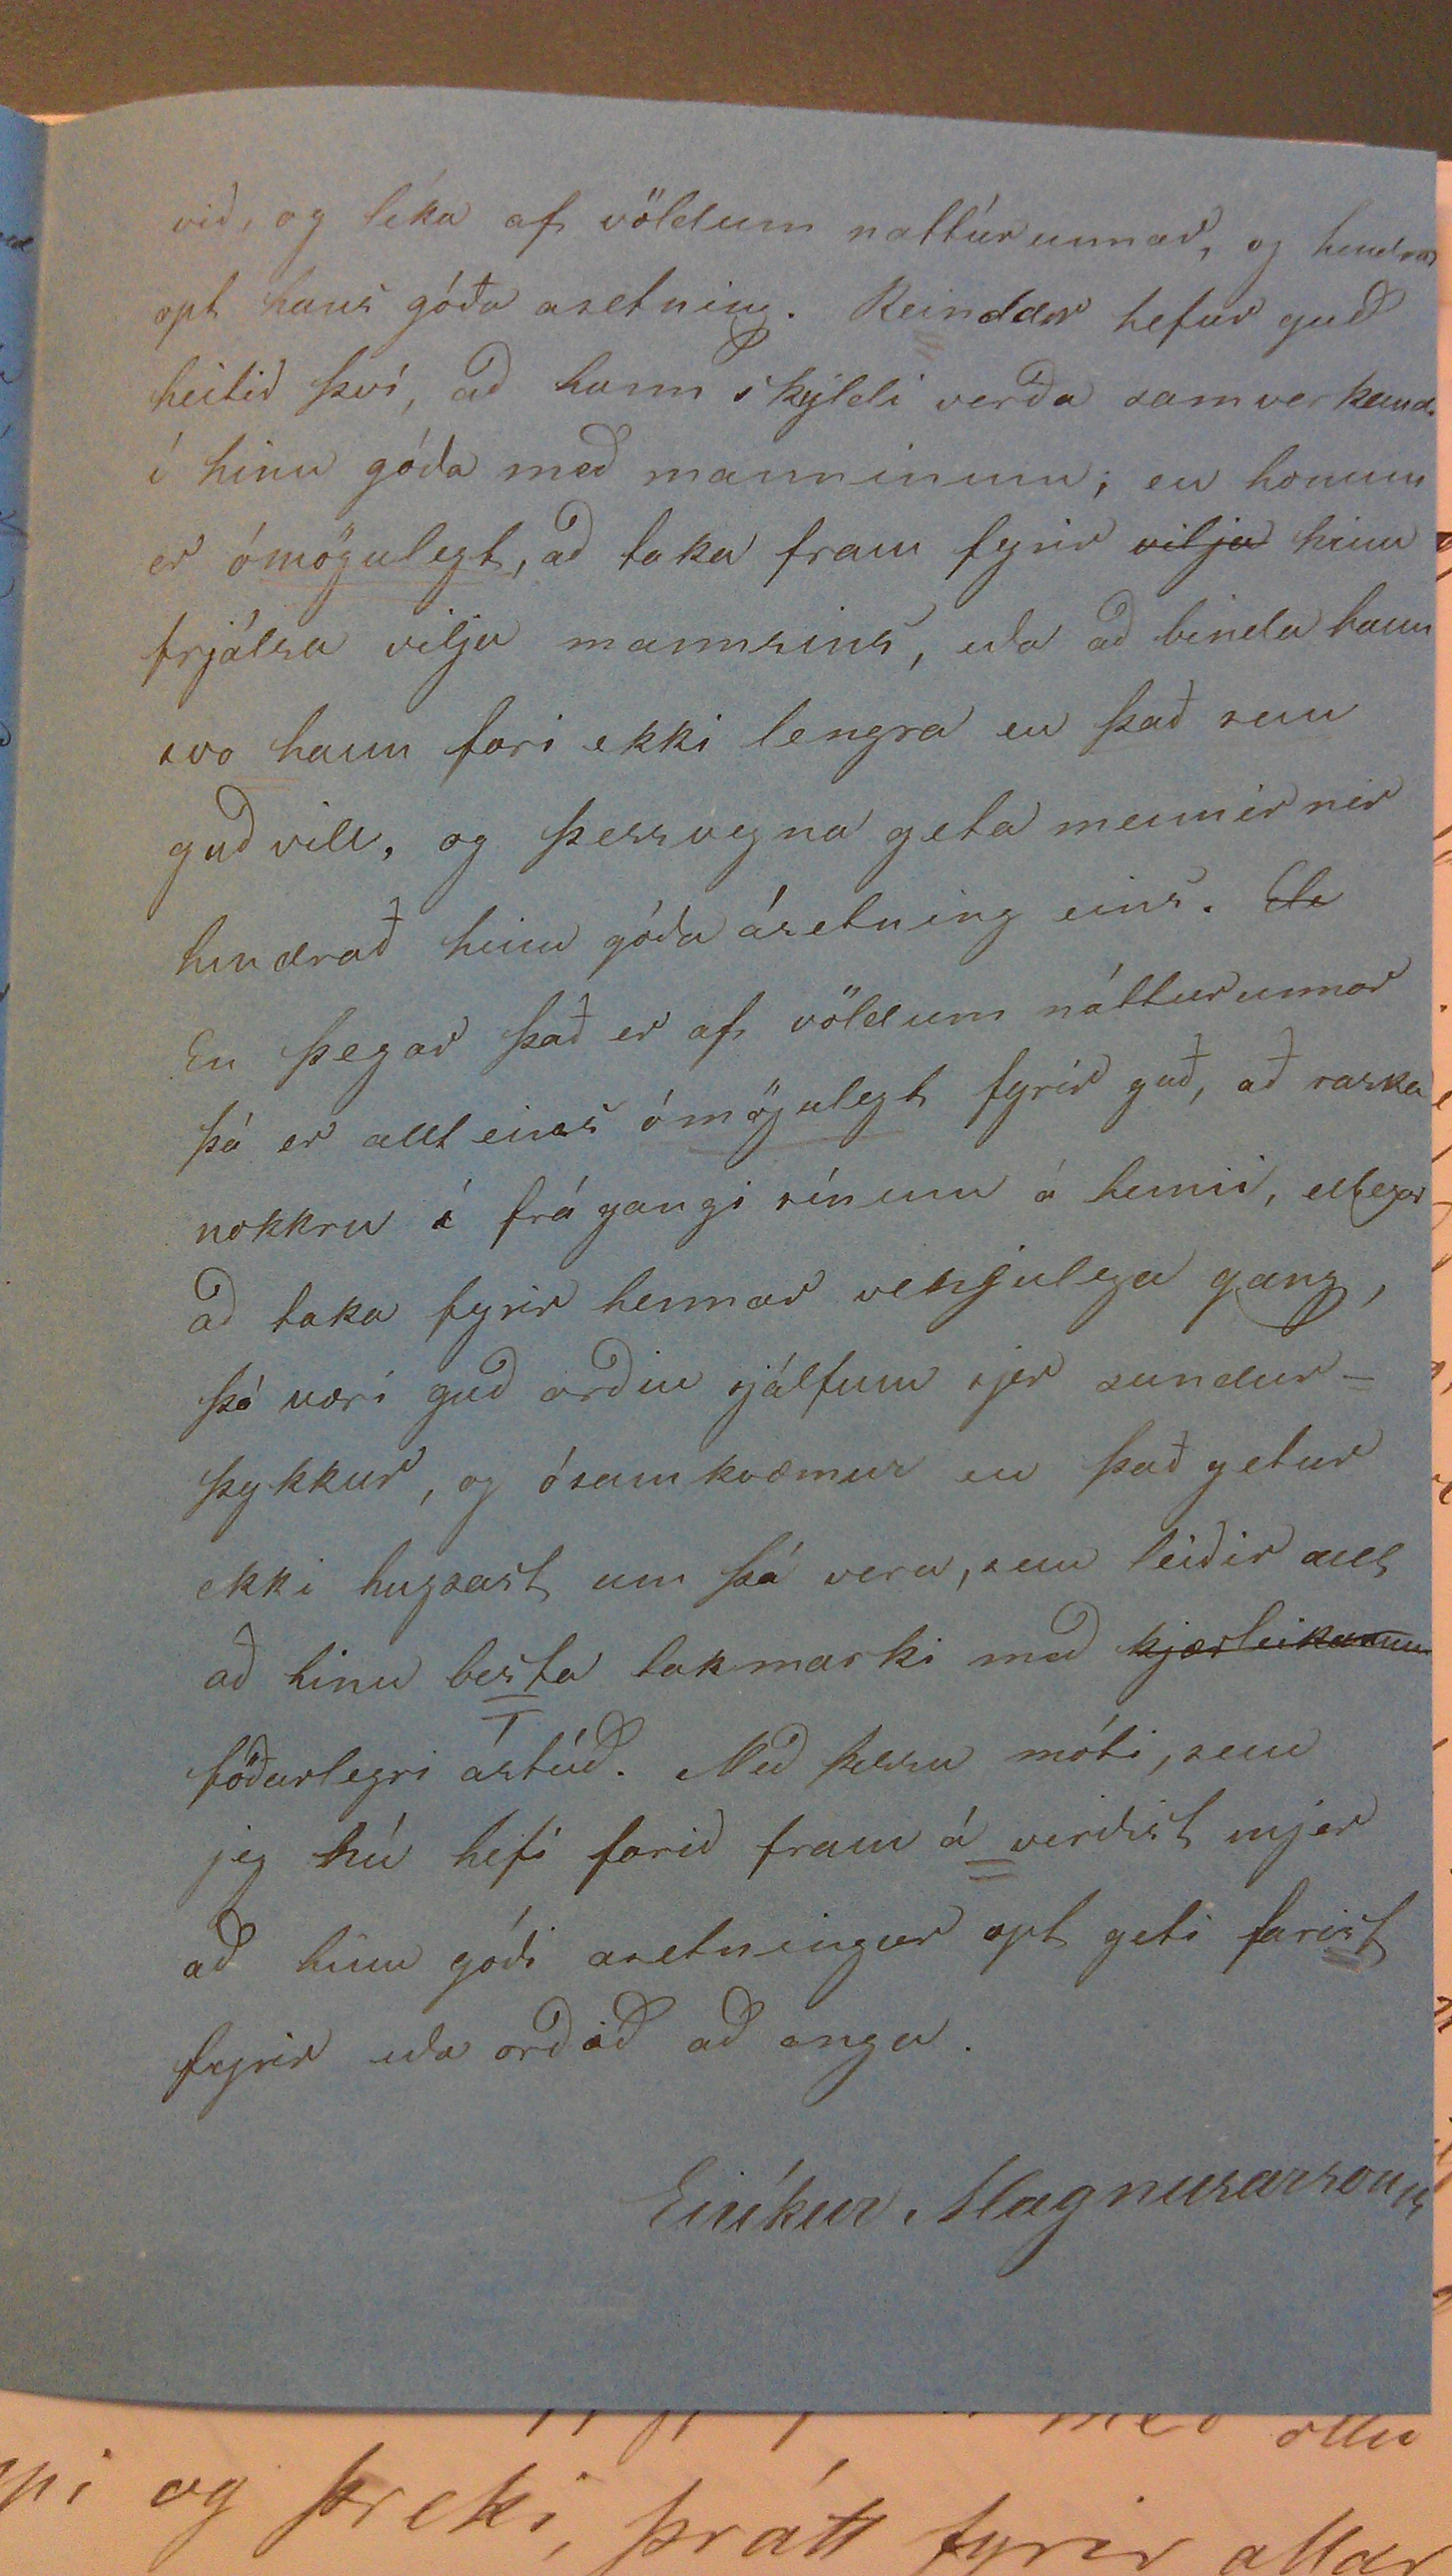 við, og léka af völdum nattúrunnar, og hindrar
opt hans góða asetning. Reindar hefur guð
heitið því, að hann skyldi verða samverkand.
í hinu góða með manninum; en honum
er ómögulegt, að taka fram fyrir vilja hinn
frjálsa vilja mannsins, eða að binda hann
svo hann fari ekki lengra en það sem
guð vill, og þessvegna geta mennirnir
hindrað hinn góða ásetning eins.
En þegar það er af völdum nátturunnar
þá er allt eins ómögulegt fyrir guð, að raska
nokkru í frágangi sínum á henni, ellegar
að taka fyrir hennar venjulega gang,
þá væri guð orðin sjálfum sjer sundur-
þykkur, og ósamkvæmur en það getur
ekki hugsast um þá veru, sem leiðir allt
að hinu besta takmarki með kjærleikanum
föðurlegri ástúð. Með þessu móti, sem
jeg nú hefi farið fram á virðist mjer
að hinn góði asetningur opt geti farist
fyrir eða orðið að anga.
Eiríkur Magnusarson
með öllu
og þreki, þrátt fyrir allar